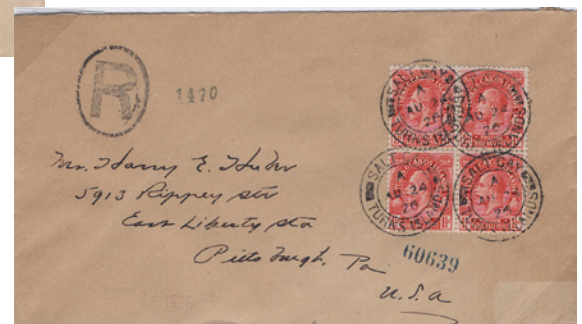 R
1470
SALT CAY
A
AU 24
26
TURKS ISLANDS
Mr. Harry E. Huber
5913 Rippey Str
East Liberty Sta
Pittsburgh. Pa
U.S.a
60639